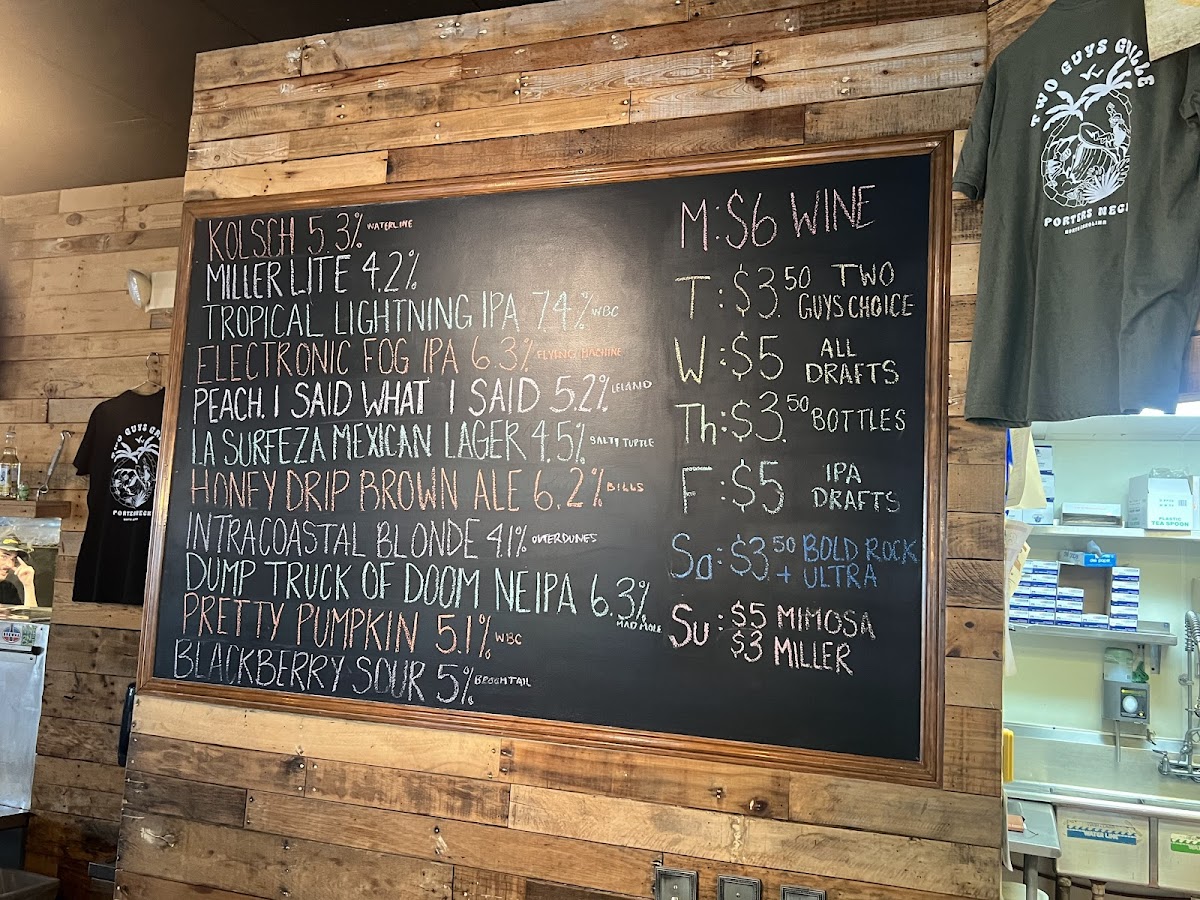 KOLSCH 5.3% WATERLINE
MILLER LITE 4.2%
TROPICAL LIGHTNING IPA 7.4% WBC
ELECTRONIC FOG IPA 6.3% FLYING MACHINE
PEACH. I SAID WHAT I SAID 5.2% LELAND
LA SURFEZA MEXICAN LAGER 4.5% SALTY TURTLE
HONEY DRIP BROWN ALE 6.2% BILLS
INTRACOASTAL BLONDE 4.1% OUTERDUNES
DUMP TRUCK OF DOOM NEIPA 6.3%
MAD MOLE
PRETTY PUMPKIN 5.1% WBC
BLACKBERRY SOUR 5% BROOMTAIL
M: $6 WINE
T: $3.50 TWO
GUYS CHOICE
W: $5 ALL
DRAFTS
Th: $3.50 BOTTLES
F: $5 IPA
DRAFTS
Sa: $3.50 BOLD ROCK
+ ULTRA
Su: $5 MIMOSA
$3 MILLER
TWO GUYS GRILLE
PORTERS NECK
NORTH CAROLINA
TWO GUYS
PORTERS NECK
PLASTIC
TEA SPOON
WATER LINE